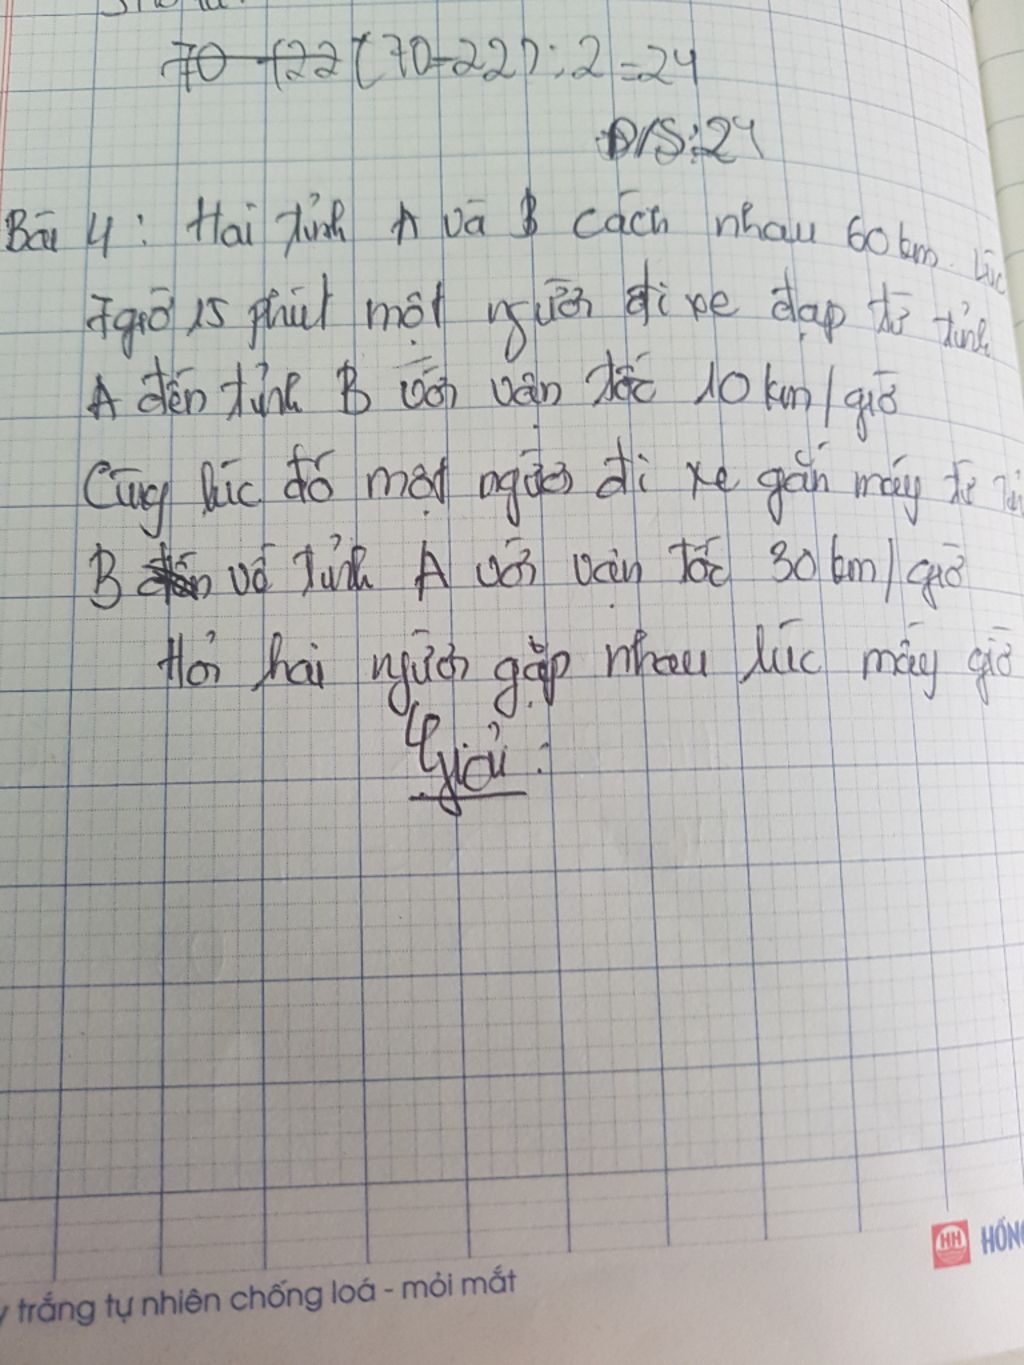 70 - (22 (70-22) : 2 = 24
Đ/S: 24
Bài 4: Hai tỉnh A và B cách nhau 60 km. Lúc
7 giờ 15 phút một người đi xe đạp từ tỉnh
A đến tỉnh B với vận tốc 10 km/giờ
Cùng lúc đó một người đi xe gắn máy từ
B đến về tỉnh A với vận tốc 30 km/giờ
Hỏi hai người gặp nhau lúc mấy giờ
Giải:
HH HỒNG
trắng tự nhiên chống loá - mỏi mắt